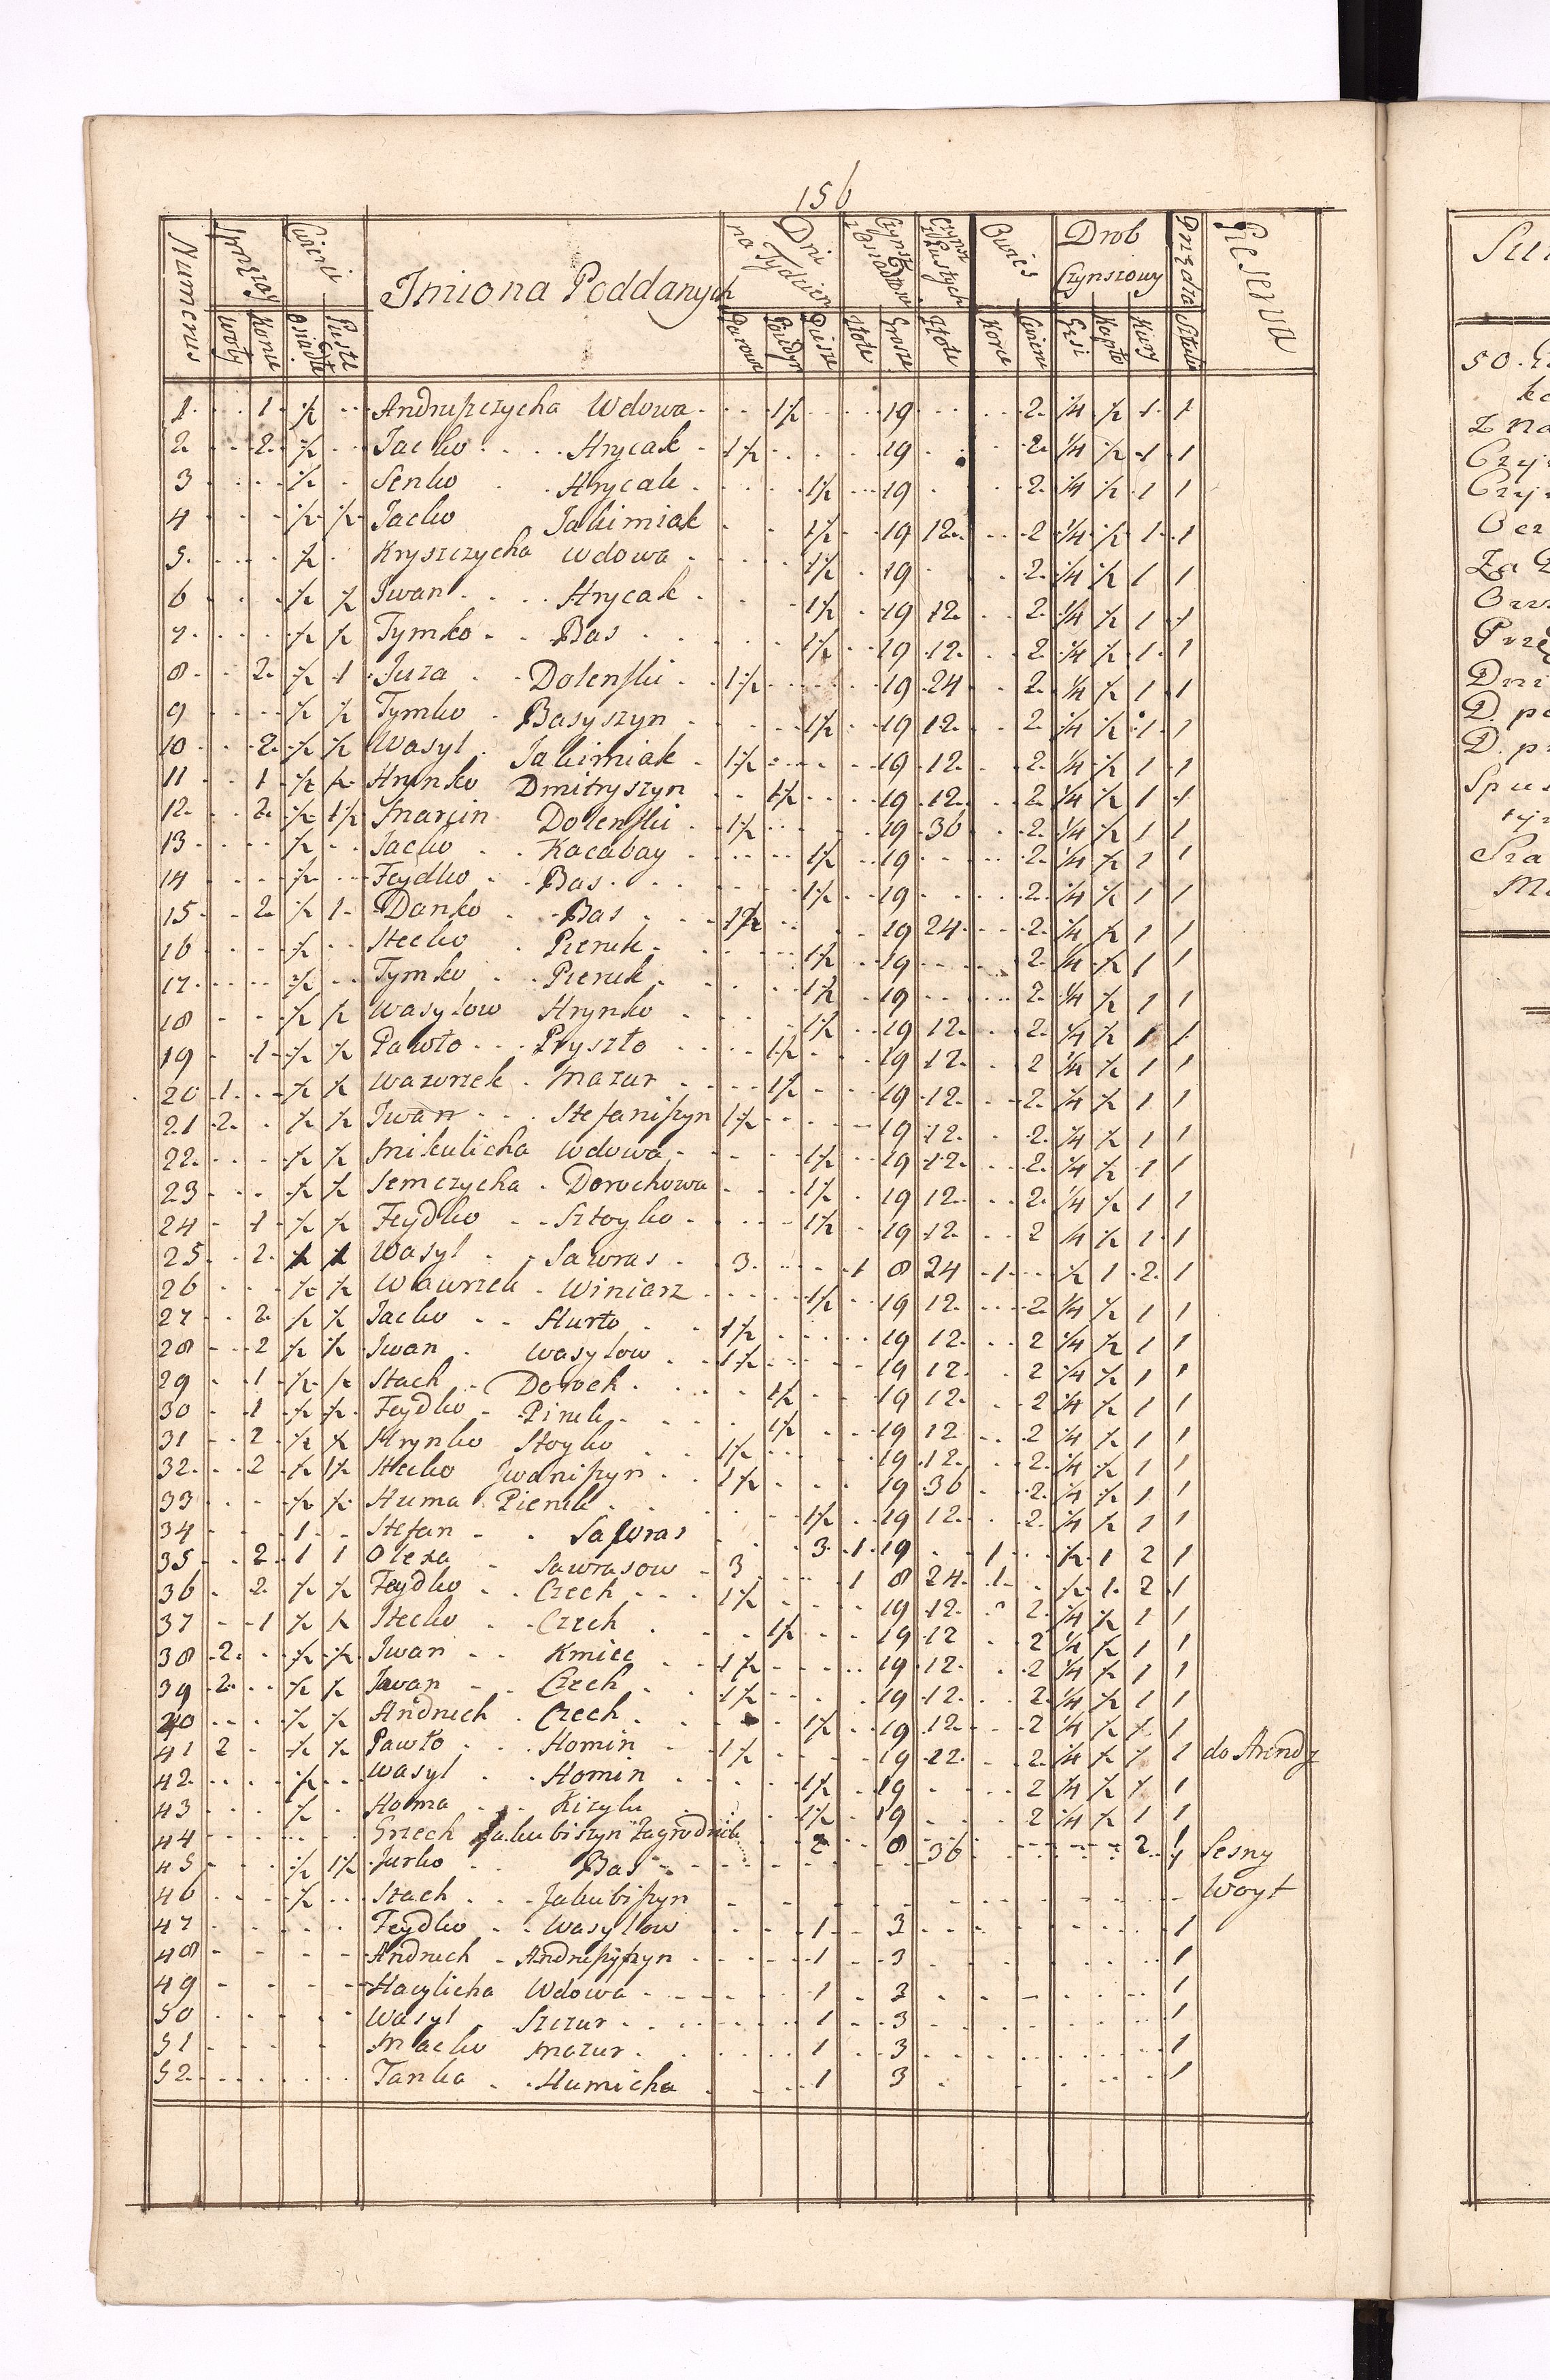 156
Numerus Sprzężay Cwierci Imiona Poddanych Dni na Tydzien Czynsz z Osiadłeo Czynsz z Pustych Owies Drob Czynszowy Przęża Reserva
Woły Konie Osiadłe Puste Parowe Poiedyn Piesze Złote Grosze Złote Korce Cwierci Gęsi Kapło Kury Sztuki
1 1 ½ Andruszczycha Wdowa 1½ 19 2 ¼ ½ 1 1
2 2 ½ Jacko Hrycak 1½ 19 2 ¼ ½ 1 1
3 ½ Senko Hrycak 1½ 19 2 ¼ ½ 1 1
4 ½ ½ Jacko Jakimiak 1½ 19 12 2 ¼ ½ 1 1
5 ½ Kryszczycha Wdowa 1½ 19 2 ¼ ½ 1 1
6 ½ ½ Jwan Hrycak 1½ 19 12 2 ¼ ½ 1 1
7 ½ ½ Tymko Bas 1½ 19 12 2 ¼ ½ 1 1
8 2 ½ 1 Juza Dolenski 1½ 19 24 2 ¼ ½ 1 1
9 ½ ½ Tymko Basyszyn 1½ 19 12 2 ¼ ½ 1 1
10 2 ½ ½ Wasyl Jakimiak 1½ 19 12 2 ¼ ½ 1 1
11 1 ½ ½ Hrynko Dmitryszyn 1½ 19 12 2 ¼ ½ 1 1
12 2 ½ 1½ Marcin Dolenski 1½ 19 36 2 ¼ ½ 1 1
13 ½ Jacko Kacabay 1½ 19 2 ¼ ½ 1 1
14 ½ Feydko Bas 1½ 19 2 ¼ ½ 1 1
15 2 ½ 1 Danko Bas 1½ 19 24 2 ¼ ½ 1 1
16 ½ Stecko Pieruk 1½ 19 2 ¼ ½ 1 1
17 ½ Tymko Pieruk 1½ 19 2 ¼ ½ 1 1
18 ½ ½ Wasylow Hrynko 1½ 19 12 2 ¼ ½ 1 1
19 1 ½ ½ Pawło Pryszło 1½ 19 12 2 ¼ ½ 1 1
20 1 ½ ½ Wawrzek Mazur 1½ 19 12 2 ¼ ½ 1 1
21 2 ½ ½ Jwan Stefaniszyn 1½ 19 12 2 ¼ ½ 1 1
22 ½ ½ Mikulicha Wdowa 1½ 19 12 2 ¼ ½ 1 1
23 ½ ½ Semczycha Dorochowa 1½ 19 12 2 ¼ ½ 1 1
24 1 ½ ½ Feydko Sztoyko 1½ 19 12 2 ¼ ½ 1 1
25 2 1 1 Wasyl Sawras 3 1 8 24 1 ½ 1 2 1
26 ½ ½ Wawrzek Winiarz 1½ 19 12 2 ¼ ½ 1 1
27 2 ½ ½ Jacko Hurło 1½ 19 12 2 ¼ ½ 1 1
28 2 ½ ½ Jwan Wasylow 1½ 19 12 2 ¼ ½ 1 1
29 1 ½ ½ Stach Doroch 1½ 19 12 2 ¼ ½ 1 1
30 1 ½ ½ Feydko Piruk 1½ 19 12 2 ¼ ½ 1 1
31 2 ½ ½ Hrynko Stoyko 1½ 19 12 2 ¼ ½ 1 1
32 2 ½ 1½ Stecko Jwaniszyn 1½ 19 36 2 ¼ ½ 1 1
33 ½ ½ Huma Pieruk 1½ 19 12 2 ¼ ½ 1 1
34 1 Stefan Sawras 3 1 19 1 ½ 1 2 1
35 2 1 1 Olexa Sawrasow 3 1 8 24 1 ½ 1 2 1
36 2 ½ ½ Feydko Czech 1½ 19 12 2 ¼ ½ 1 1
37 1 ½ ½ Stecko Czech 1½ 19 12 2 ¼ ½ 1 1
38 2 ½ ½ Jwan Kmiec 1½ 19 12 2 ¼ ½ 1 1
39 2 ½ ½ Jwan Czech 1½ 19 12 2 ¼ ½ 1 1
40 ½ ½ Andruch Czech 1½ 19 12 2 ¼ ½ 1 1
41 2 ½ ½ Pawło Homin 1½ 19 12 2 ¼ ½ 1 1 do Arendy
42 ½ Wasyl Homin 1½ 19 2 ¼ ½ 1 1
43 ½ Homa Kizyk 1½ 19 2 ¼ ½ 1 1
44 Grzech Jakubiszyn Zagrodnik 2 8 2 1
45 ½ 1½ Jurko Bas 36 1 Lesny
46 ½ Stach Jakubiszyn Woyt
47 Feydko Wasylow 1 3 1
48 Andruch Andruszyszyn 1 3 1
49 Hacylicha Wdowa 1 3 1
50 Wasyl Szczur 1 3 1
51 Macko Mazur 1 3 1
52 Tanka Humicha 1 3 1